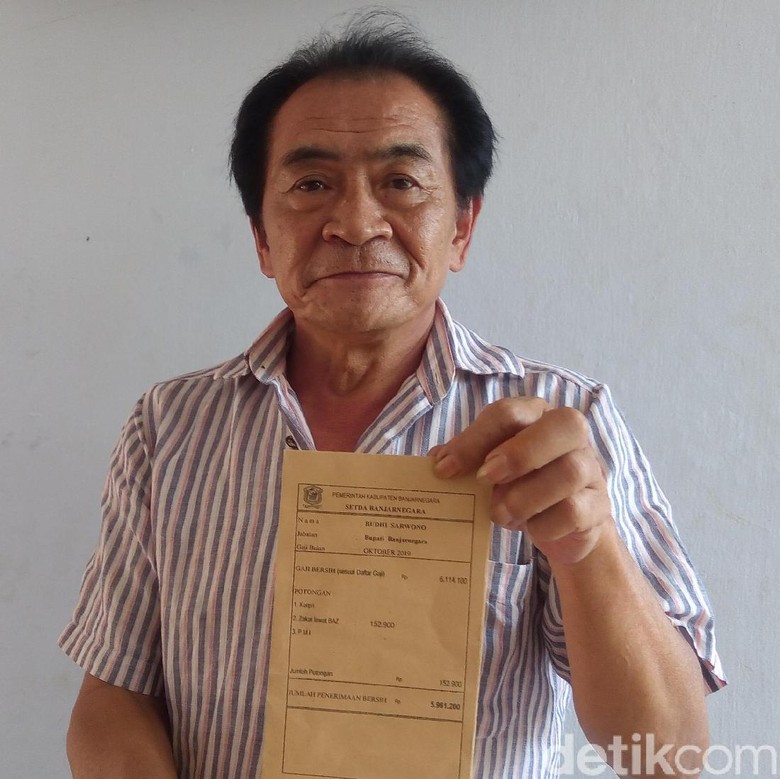 PEMERINTAH KABUPATEN BANJARNEGARA
SETDA BANJARNEGARA
Nama BUDHI SARWONO
Jabatan Bupati Banjarnegara
Gaji Bulan OKTOBER 2019
GAJI BERSIH (sesuai Daftar Gaji) Rp 6,114,100
POTONGAN
1. Korpri
2. Zakat lewat BAZ 152,900
3. P M I
Jumlah Potongan Rp 152,900
JUMLAH PENERIMAAN BERSIH Rp 5,961,200
detikcom